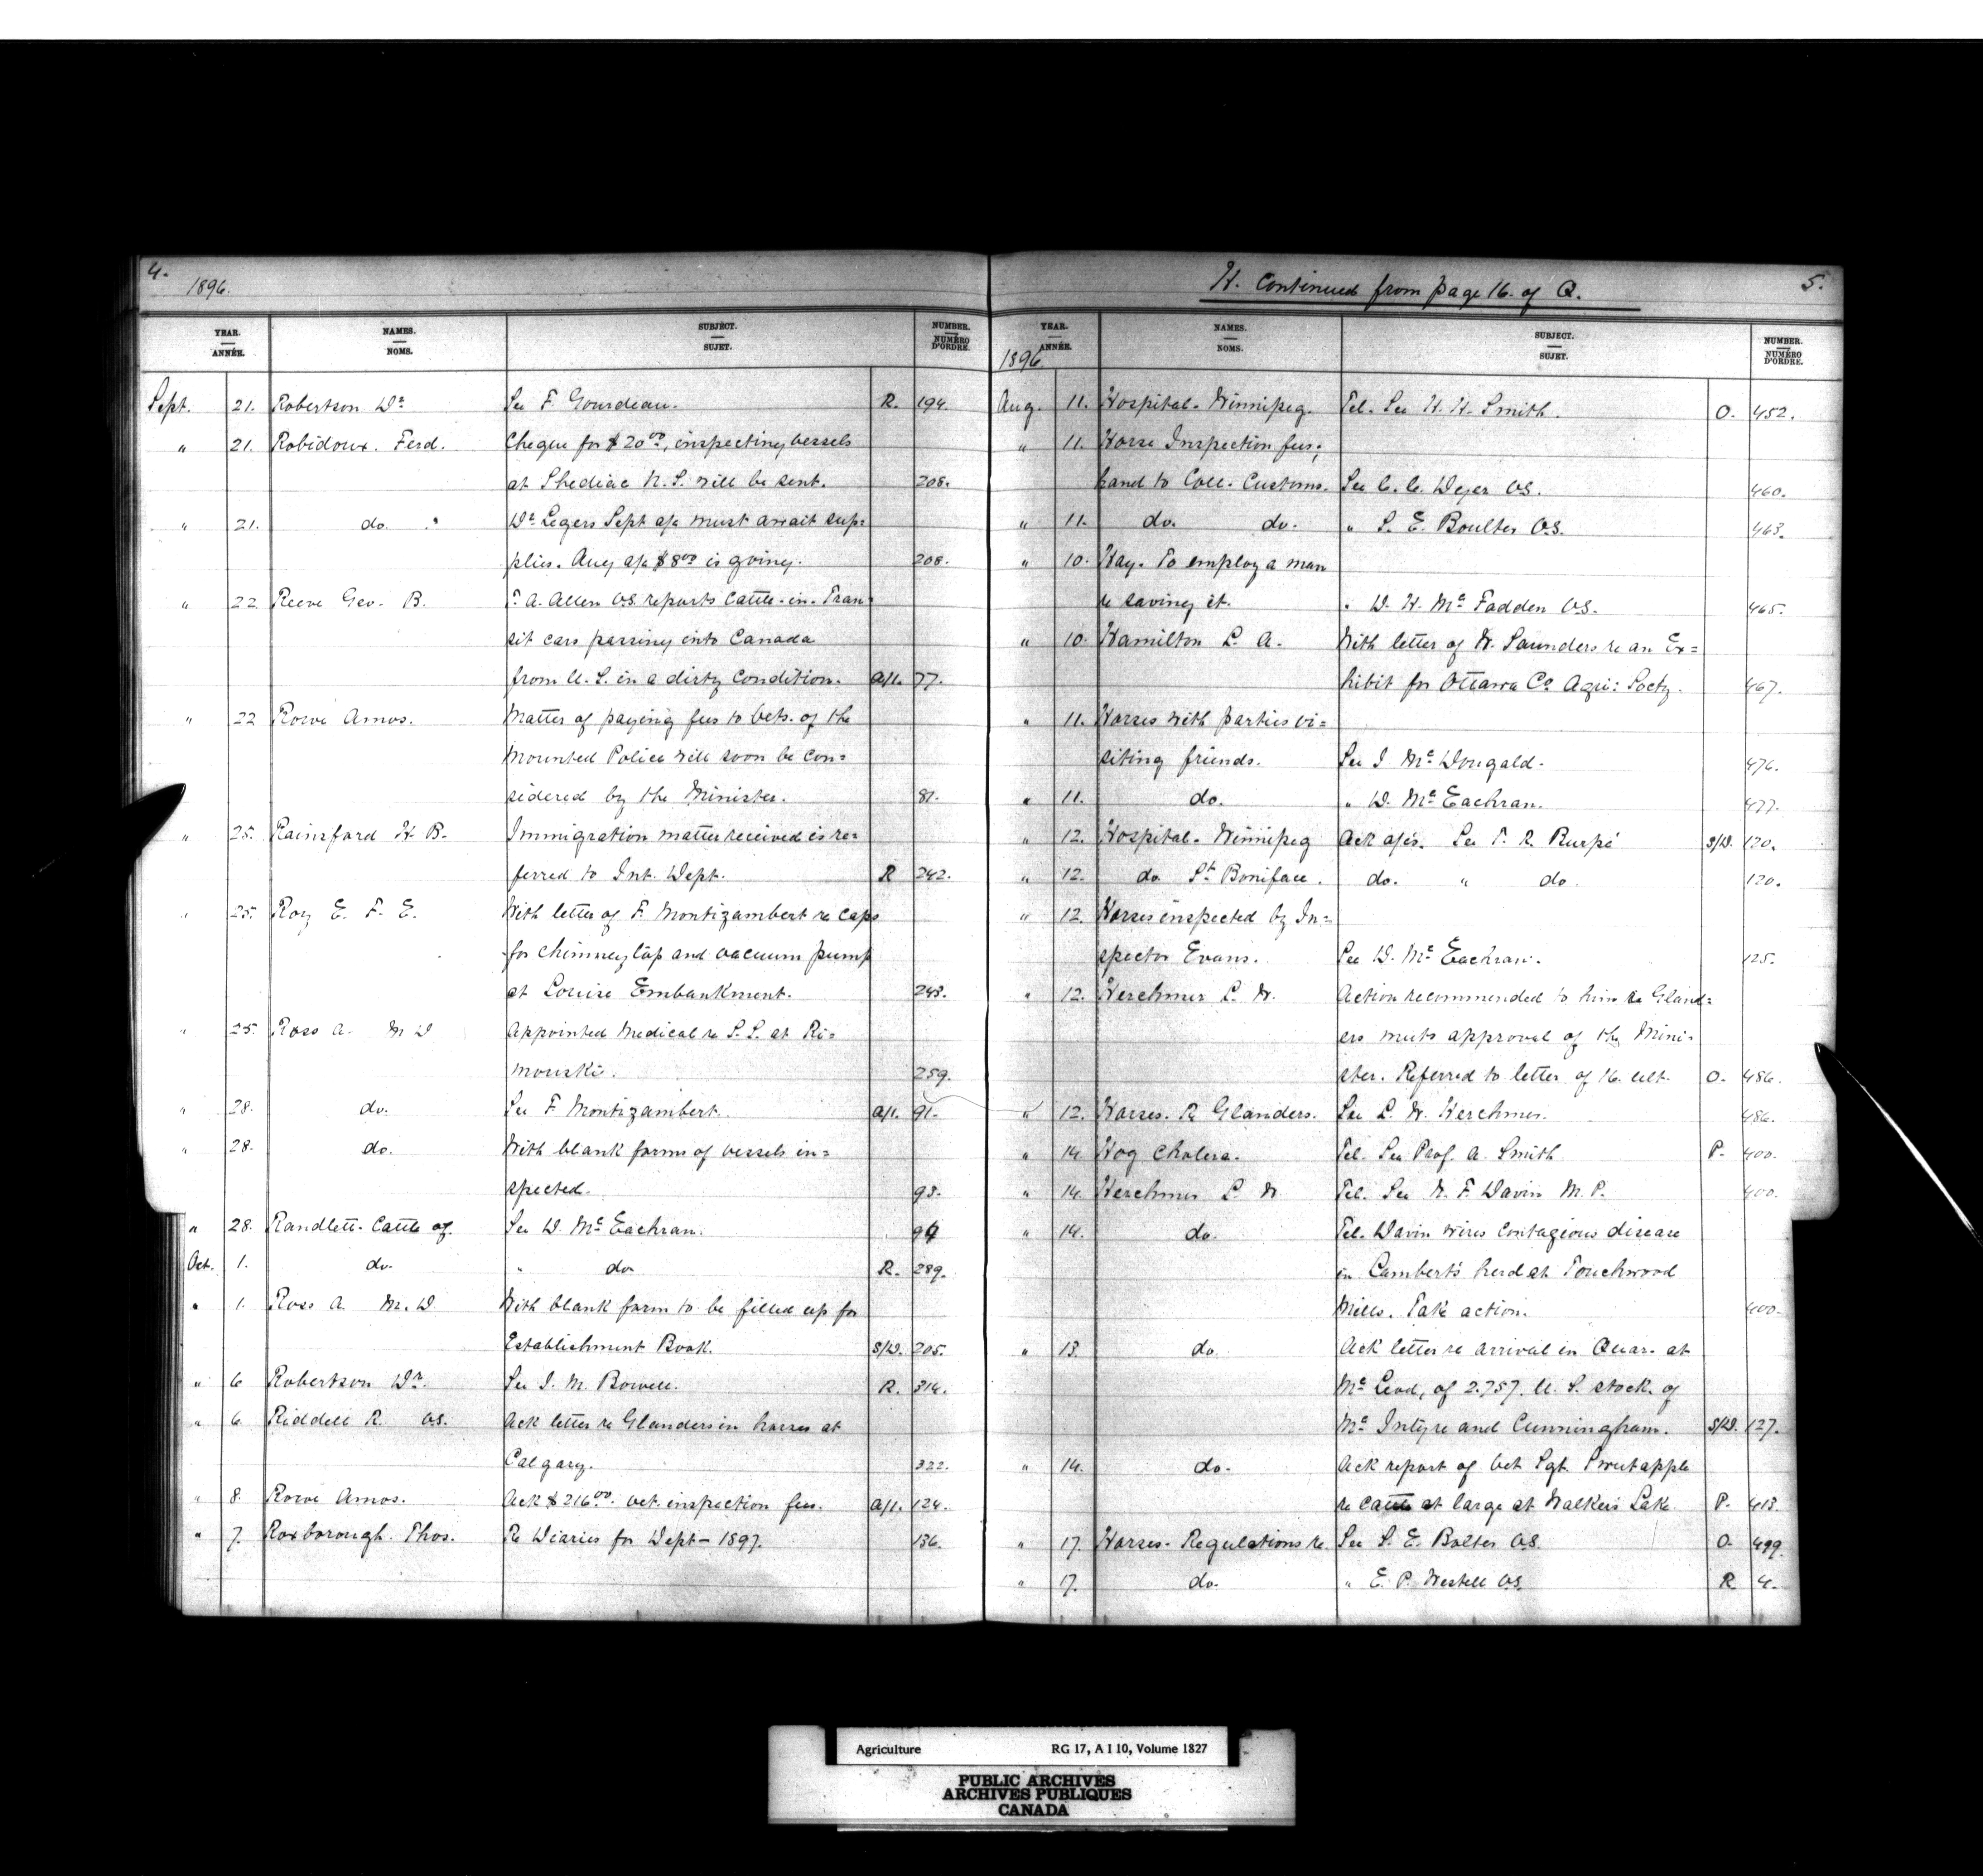 4.
1896.
YEAR. ANNÉE. NAMES. NOMS. SUBJECT. SUJET. NUMBER. NUMÉRO D'ORDRE.
Sept. 21. Robertson Dr. See F. Gourdeau. R. 194.
" 21. Robidoux. Ferd. Cheque for $20.00, inspecting vessels
at Shediac N.S. will be sent. 208.
" 21. do. Dr. Legers Sept a/c must await sup=
plies. Aug a/c $8.00 is going. 208.
" 22 Reeve Geo. B. A. Allen V.S. reports Cattle-in-Tran=
sit cars passing into Canada
from U.S. in a dirty Condition. A/1. 77.
" 22 Rowe Amos. Matter of paying fees to Vets. of the
Mounted Police will soon be Con=
sidered by the Minister. 81.
" 25. Rainsford H B. Immigration matter received is re=
ferred to Int. Dept. R 242.
" 25. Roy E. F. E. With letter of F. Montizambert re Caps
for chimney top and vacuum pump
at Louise Embankment. 243.
" 25. Ross A. M D Appointed Medical re S.S. at Ri=
mouski. 259.
" 28. do. See F Montizambert. A/1. 91.
" 28. do. With blank forms of vessels in=
spected. 93.
" 28. Randlett. Cattle of. See D. McEachran. 94
Oct. 1. do. " do R. 289.
" 1. Ross A. M.D With blank form to be filled up for
Establishment Book. S/D. 205.
" 6 Robertson Dr. See I. M. Bowell. R. 314.
" 6. Riddell R. VS. Ack letter re Glanders in horses at
Calgary. 322.
" 8. Rowe Amos. Ack $216.00. vet. inspection fees. A/1. 124.
" 7. Roxborough. Thos. Re Diaries for Dept - 1897. 136.
H. Continued from page 16. of Q. 5.
YEAR. ANNÉE. NAMES. NOMS. SUBJECT. SUJET. NUMBER. NUMÉRO D'ORDRE.
1896
Aug. 11. Hospital. Winnipeg. Tel. See H. H. Smith. O. 452.
" 11. Horse Inspection fees;
hand to Coll. Customs. See C. C. Dyer VS. 460.
" 11. do. do. " S. E. Boulter V.S. 463.
" 10. Hay. To employ a man
re saving it. " D. H. McFadden V.S. 465.
" 10. Hamilton L. A. With letter of W. Saunders re an Ex=
hibit for Ottawa Co. Agri: Socty. 467.
" 11. Horses with parties vi=
siting friends. See J McDougald. 476.
" 11. do. " D. McEachran. 477.
" 12. Hospital. Winnipeg Ack a/cs. See T. R. Burpé S/D. 120.
" 12. do St. Boniface. do. " do. 120.
" 12. Horses inspected by In=
spector Evans. See D. McEachran. 125.
" 12. Herchmer L. W. Action recommended to him re Gland=
ers meets approval of the Mini=
ster. Referred to letter of 16. ult. O. 486.
" 12. Horses. Re Glanders. See L. W. Herchmer. 486.
" 14 Hog Cholera. Tel. See Prof. A. Smith P. 400.
" 14. Herchmer L. W Tel. See N. F. Davin M.P. 400.
" 14. do. Tel. Davin wires Contagious disease
in Lambert's herd at Touchwood
Hills. Take action. 400.
" 13. do. Ack letter re arrival in Quar. at
McLeod, of 2.757. U.S. stock of
McIntyre and Cunningham. S/D. 127.
" 14. do. Ack report of Vet Sgt. Sweetapple
re cattle at large at Walkers Lake. P. 413.
" 17. Horses. Regulations re. See S. E. Bolter V.S. O. 499.
" 17. do. " E. P. Westell V.S. R 4.
Agriculture RG 17, A I 10, Volume 1827
PUBLIC ARCHIVES
ARCHIVES PUBLIQUES
CANADA